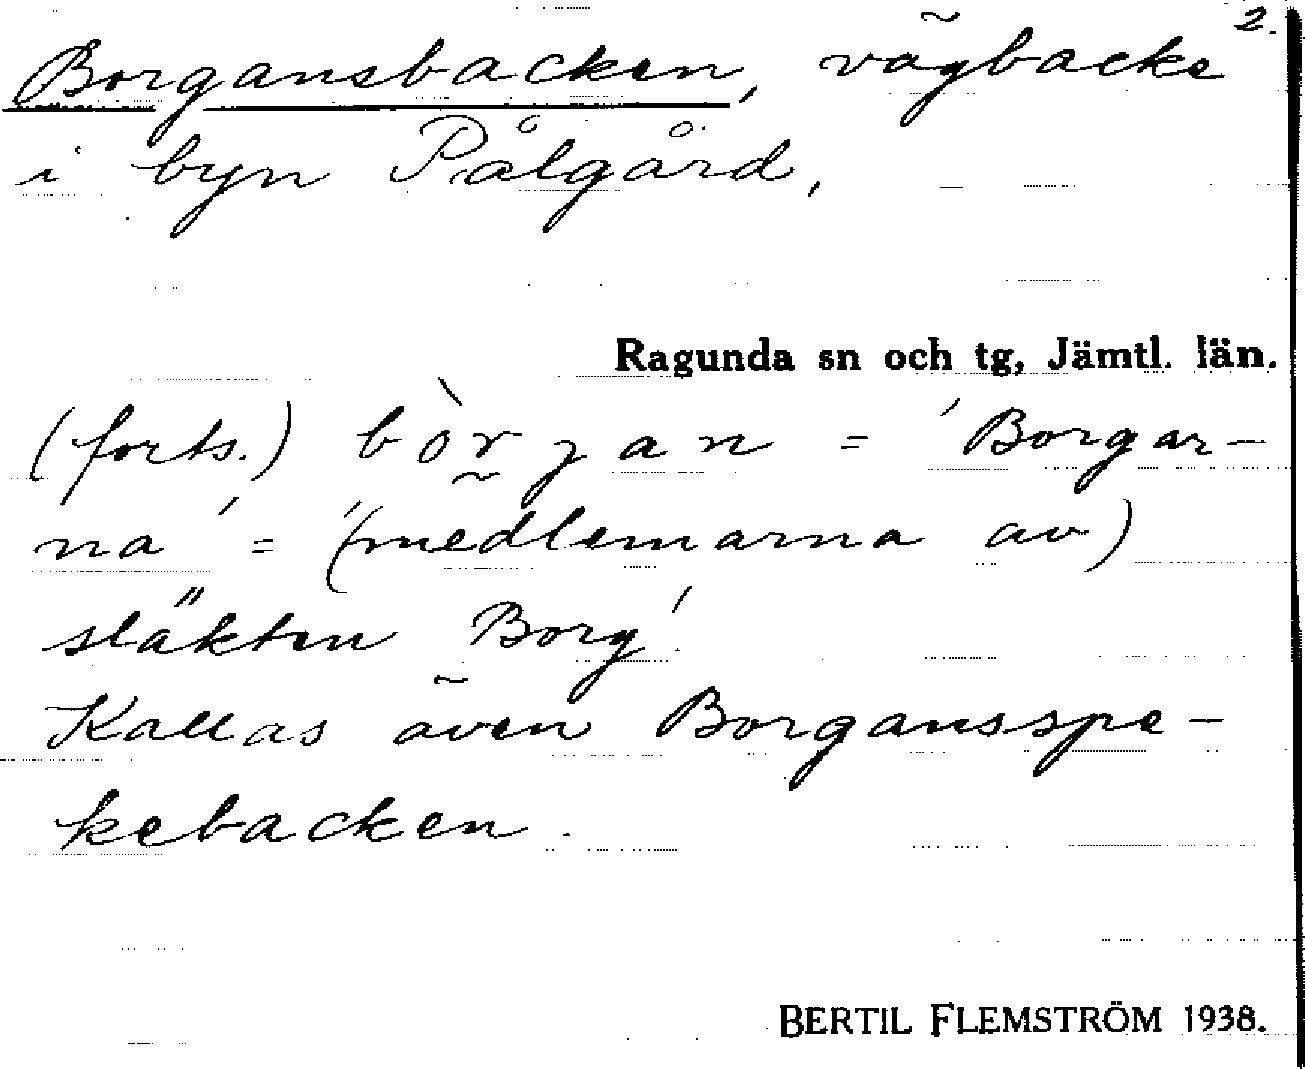 2.
Borgansbacken, vägbacke
i byn Pålgård,
Ragunda sn och tg, Jämtl. län.
(forts.) bòrgan = 'Borgar-
na' = '(medlemarna av)
släkten Borg'.
Kallas även Borgansspe-
kebacken.
BERTIL FLEMSTRÖM 1938.